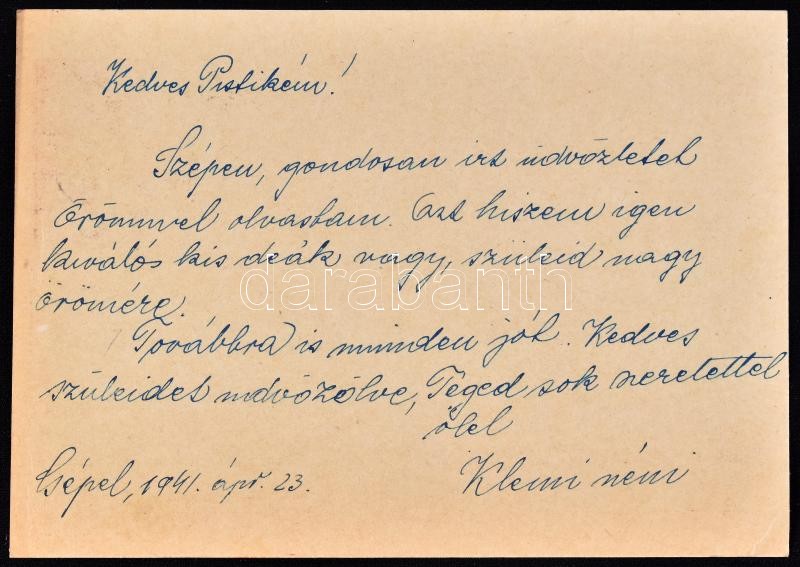 Kedves Pistikém!
Szépen, gondosan irt üdvözletet
örömmel olvastam. Azt hiszem igen
kiválós kis deák vagy, szüleid nagy
örömére.
darabanth
Továbbra is minden jót. Kedves
szüleidet üdvözölve, Téged sok szeretettel
ölel
Csépel, 1941. ápr. 23.
Klemi néni